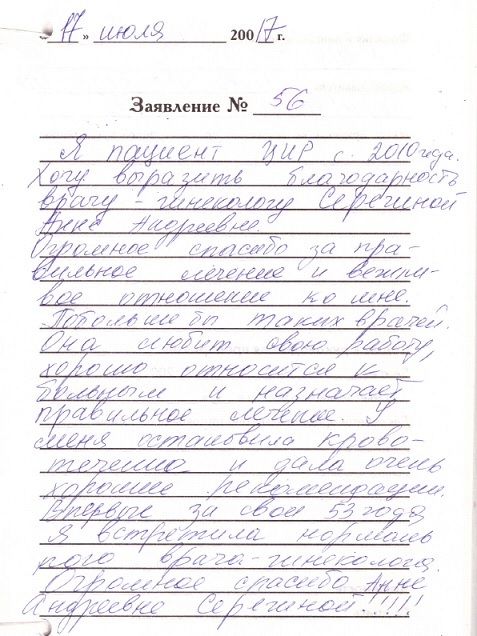 « 17 » июля 20017 г.
Заявление № 56
Я пациент ЦИР с 2010 года.
Хочу выразить благодарность
врачу - гинекологу Серегиной
Анне Андреевне.
Огромное спасибо за пра-
вильное лечение и вежли-
вое отношение ко мне.
Побольше бы таких врачей.
Она любит свою работу,
хорошо относится к
больным и назначает
правильное лечение. У
меня остановила крово-
течение и дала очень
хорошие рекомендации.
Впервые за свои 53 года
я встретила нормаль
ного врача-гинеколога.
Огромное спасибо Анне
Андреевне Серегиной!!!!!